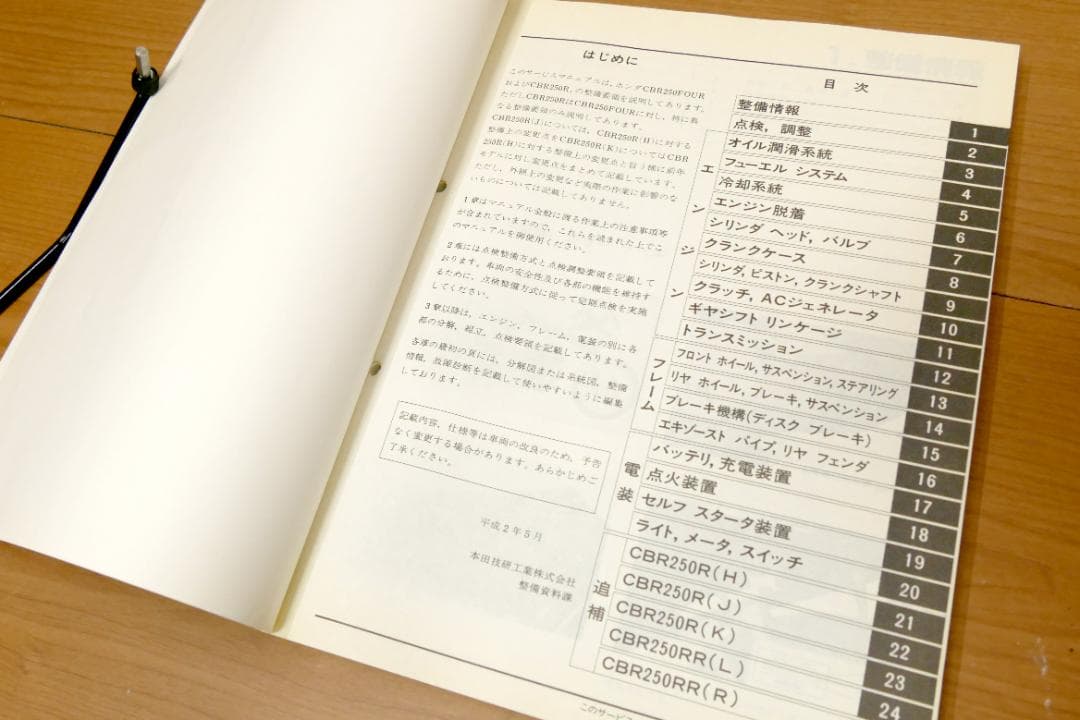 はじめに
このサービスマニュアルは、ホンダCBR250FOUR
およびCBR250R、の整備要領を説明してあります。
ただしCBR250RはCBR250FOURに対し、特に異
なる整備要領のみ説明してあります。
CBR250R(J)については、CBR250R(H)に対する
整備上の変更点をCBR250R(K)についてはCBR
250R(H)に対する整備上の変更点と言う様に前年
モデルに対し変更点をまとめて記載しています。
ただし、外観上の変更など実際の作業に影響のな
いものについては記載してありません。
1章はマニュアル全般に渡る作業上の注意事項等
が含まれていますので、これらを読まれた上でこ
のマニュアルを御使用ください。
2章には点検整備方式と点検調整要領を記載して
おります。車両の安全性及び各部の機能を維持す
るために、点検整備方式に従って定期点検を実施
してください。
3章以降は、エンジン、フレーム、電装の別に各
部の分解、組立、点検要領を記載してあります。
各章の最初の頁には、分解図または系統図、整備
情報、故障診断を記載して使いやすいように編集
しております。
記載内容、仕様等は車両の改良のため、予告
なく変更する場合があります。あらかじめご
了承ください。
平成2年5月
本田技研工業株式会社
整備資料課
目 次
整備情報 1
点検，調整 2
オイル潤滑系統 3
フューエル システム 4
冷却系統 5
エンジン脱着 6
シリンダ ヘッド，バルブ 7
クランクケース 8
シリンダ，ピストン，クランクシャフト 9
クラッチ，ACジェネレータ 10
ギヤシフト リンケージ 11
トランスミッション 12
フロント ホイール，サスペンション，ステアリング 13
リヤ ホイール，ブレーキ，サスペンション 14
ブレーキ機構(ディスク ブレーキ) 15
エキゾースト パイプ，リヤ フェンダ 16
バッテリ，充電装置 17
点火装置 18
セルフ スタータ装置 19
ライト，メータ，スイッチ 20
CBR250R(H) 21
CBR250R(J) 22
CBR250R(K) 23
CBR250RR(L) 24
CBR250RR(R)
エンジン
フレーム
電装
追補
このサービス